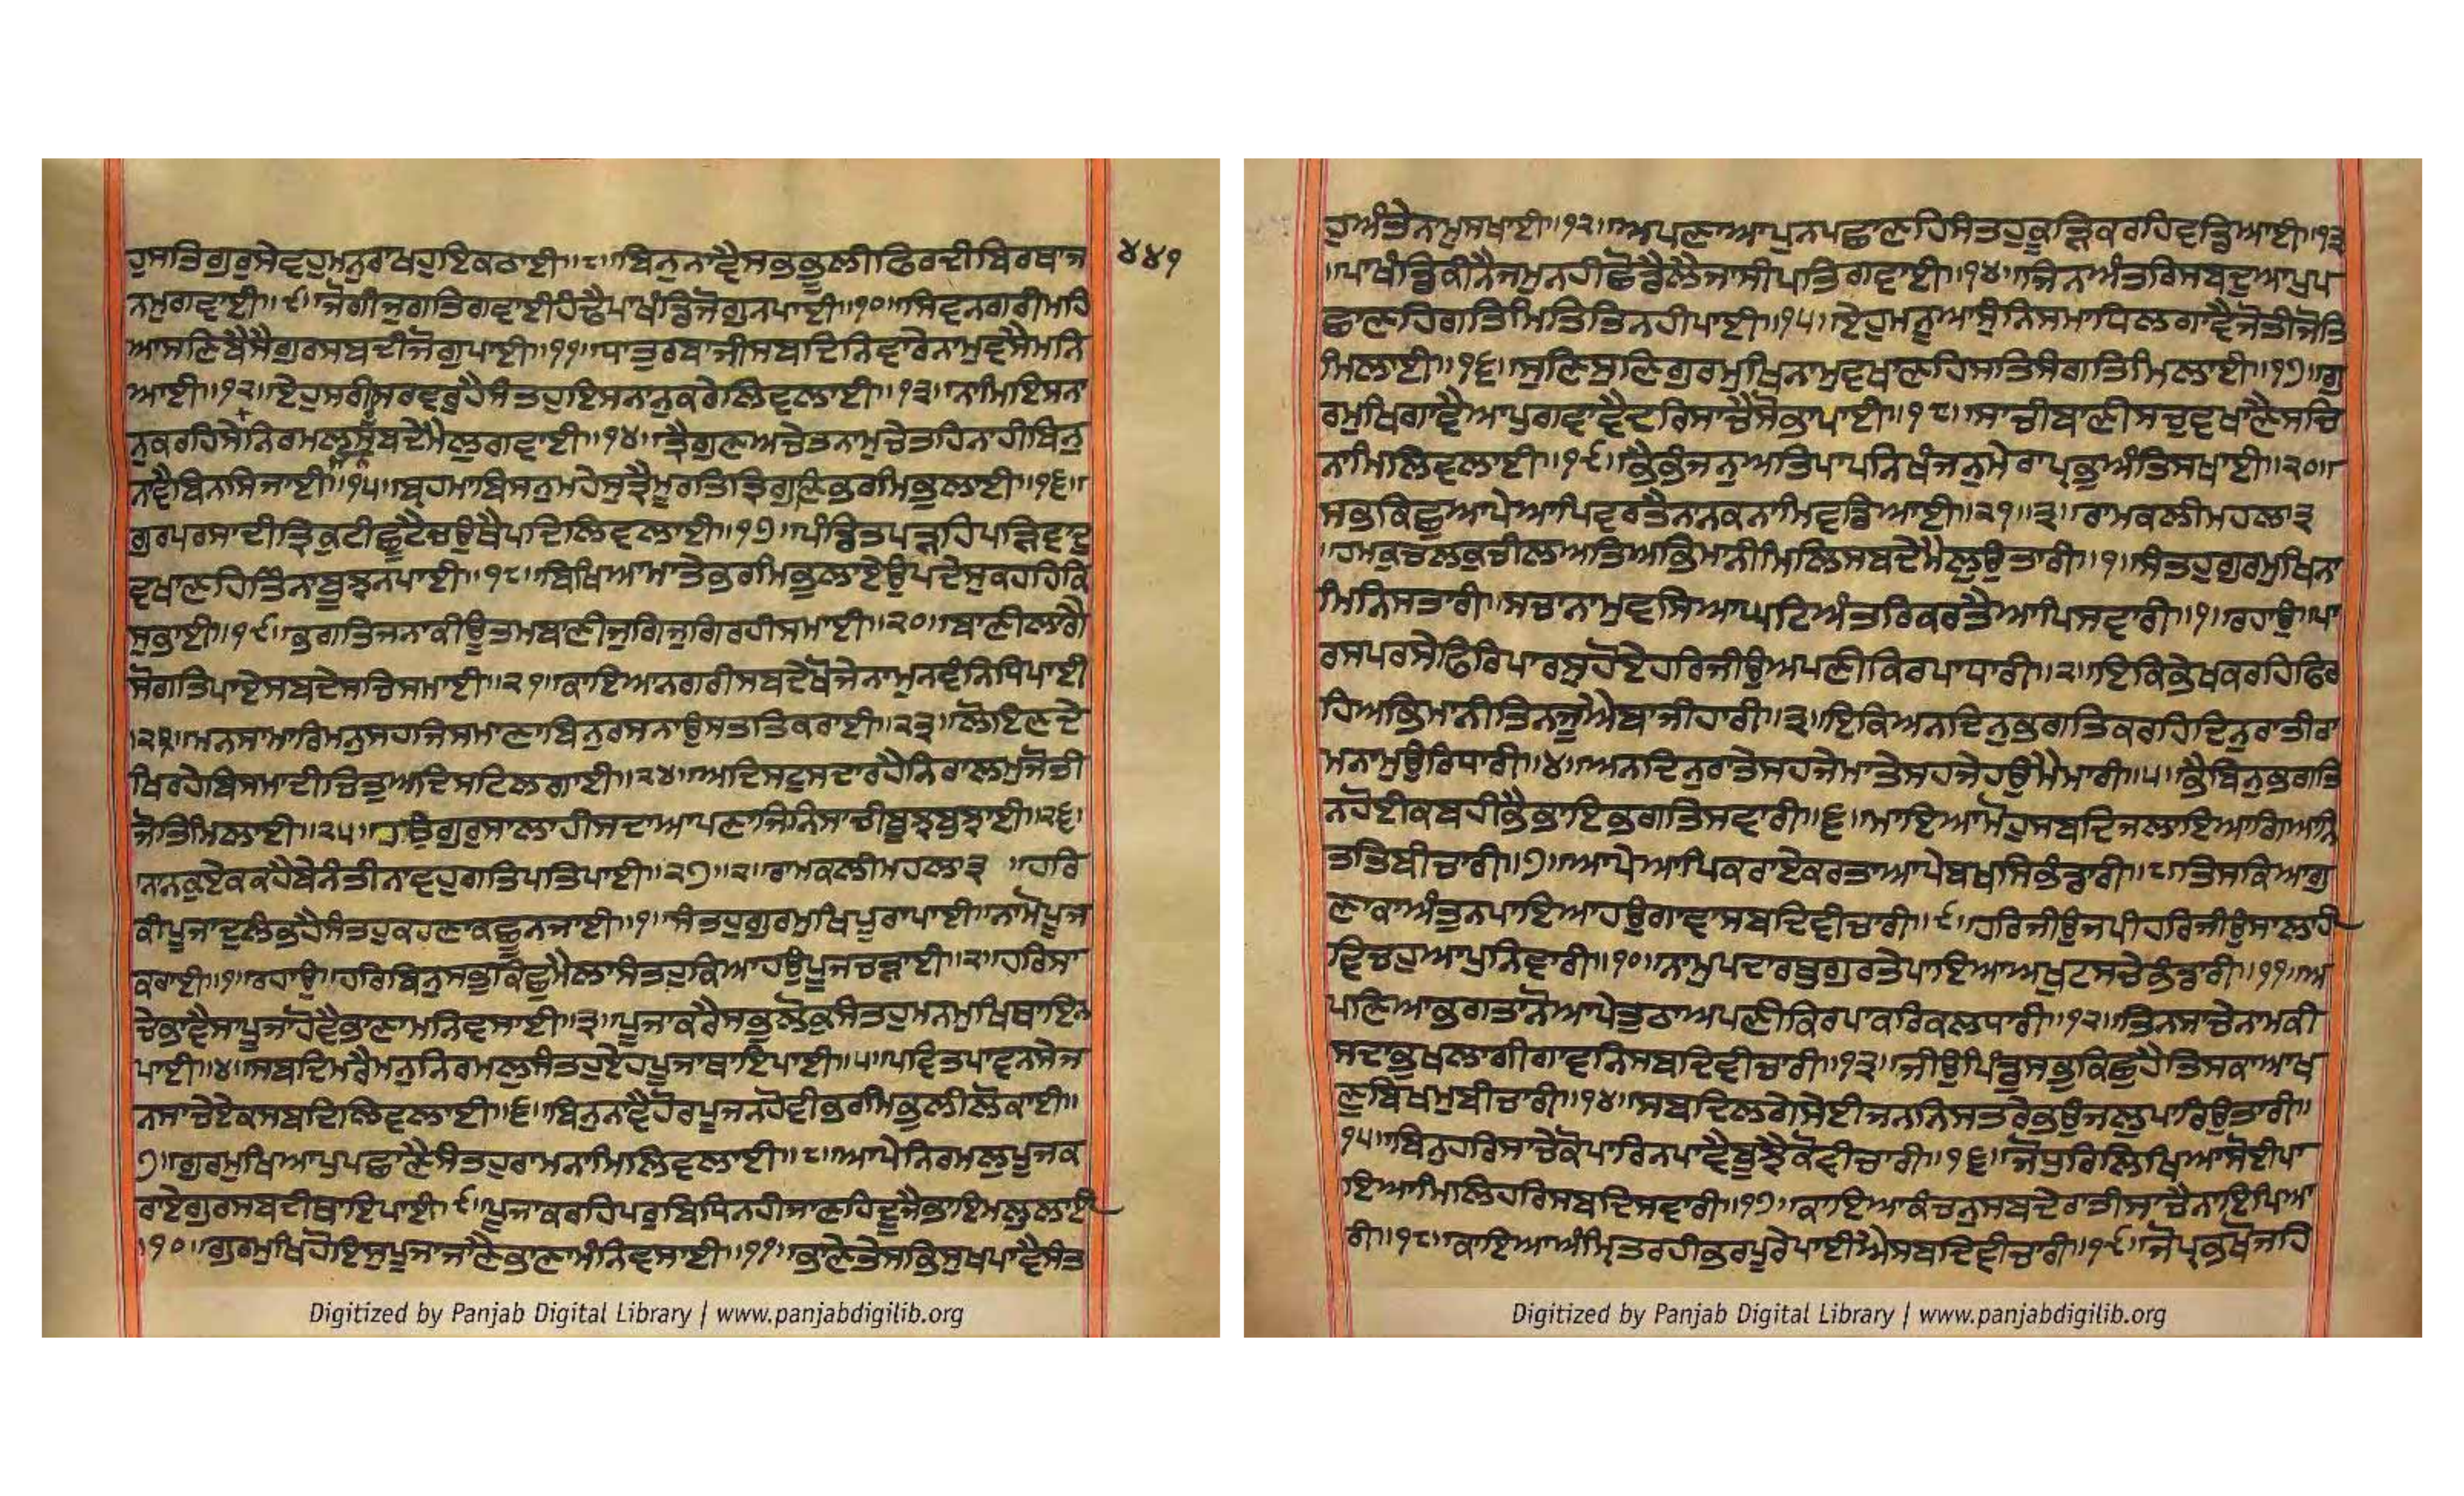 ਹੁਸਤਿਗੁਰੁਸੇਵਹੁਮਨੁਰਾਖਹੁਇਕਠਾਈ॥੮॥ਬਿਨੁਨਾਵੈਸਭਭੂਲੀਫਿਰਦੀਬਿਰਥਾਜ
੪੪੧
ਨਮੁਗਵਾਈ॥੯॥ਜੋਗੀਜੁਗਤਿਗਵਾਈਹੰਢੈਪਾਖੰਡਿਜੋਗੁਨਪਾਈ॥੧੦॥ਸਿਵਨਗਰੀਮਹਿ
ਆਸਣਿਬੈਸੈਗੁਰਸਬਦੀਜੋਗੁਪਾਈ॥੧੧॥ਧਾਤੁਰਬਾਜੀਸਬਦਿਨਿਵਾਰੇਨਾਮੁਵਸੈਮਨਿ
ਆਈ॥੧੨॥ਏਹੁਸਰੀਸਰਵਰੁਹੈਸੰਤਹੁਇਸਨਾਨੁਕਰੇਲਿਵਲਾਈ॥੧੩॥ਨਾਮਿਇਸਨਾ
ਨੁਕਰਹਿਸੇਨਿਰਮਲੁਸਬਦੇਮੈਲੁਗਵਾਈ॥੧੪॥ਤ੍ਰੈਗੁਣਅਚੇਤਨਾਮੁਚੇਤਹਿਨਾਹੀਬਿਨੁ
ਨਾਵੈਬਿਨਸਿਜਾਈ॥੧੫॥ਬ੍ਰਹਮਾਬਿਸਨੁਮਹੇਸੁਤ੍ਰੈਮੂਰਤਿਤ੍ਰਿਗੁਣਿਭਰਮਿਭੁਲਾਈ॥੧੬॥
ਗੁਰਪਰਸਾਦੀਤ੍ਰਿਕੁਟੀਛੂਟੈਚਉਥੈਪਦਿਲਿਵਲਾਈ॥੧੭॥ਪੰਡਿਤਪੜਹਿਪੜਿਵਾਦੁ
ਵਖਾਣਹਿਤਿੰਨਾਬੂਝਨਪਾਈ॥੧੮॥ਬਿਖਿਆਮਾਤੇਭਰਮਿਭੁਲਾਏਉਪਦੇਸੁਕਹਹਿਕਿ
ਸੁਭਾਈ॥੧੯॥ਭਗਤਿਜਨਾਕੀਊਤਮਬਾਣੀਜੁਗਿਜੁਗਿਰਹੀਸਮਾਈ॥੨੦॥ਬਾਣੀਲਾਗੈ
ਸੋਗਤਿਪਾਏਸਬਦੇਸਚਿਸਮਾਈ॥੨੧॥ਕਾਇਆਨਗਰੀਸਬਦੇਖੋਜੇਨਾਮੁਨਵੰਨਿਧਿਪਾਈ
॥੨੨॥ਮਨਸਾਮਾਰਿਮਨੁਸਹਜਿਸਮਾਣਾਬਿਨੁਰਸਨਾਉਸਤਤਿਕਰਾਈ॥੨੩॥ਲੋਇਣਦੇ
ਖਿਰਹੇਬਿਸਮਾਦੀਚਿਤੁਅਦਿਸਟਿਲਗਾਈ॥੨੪॥ਅਦਿਸਟੁਸਦਾਰਹੈਨਿਰਾਲਮੁਜੋਤੀ
ਜੋਤਿਮਿਲਾਈ॥੨੫॥ਹਉਗੁਰੁਸਾਲਾਹੀਸਦਾਆਪਣਾਜਿਨਿਸਾਚੀਬੂਝਬੁਝਾਈ॥੨੬॥
ਨਾਨਕੁਏਕਕਹੈਬੇਨੰਤੀਨਾਵਹੁਗਤਿਪਤਿਪਾਈ॥੨੭॥੨॥ਰਾਮਕਲੀਮਹਲਾ੩॥ਹਰਿ
ਕੀਪੂਜਾਦੁਲੰਭਹੈਸੰਤਹੁਕਹਣਾਕਛੂਨਜਾਈ॥੧॥ਸੰਤਹੁਗੁਰਮੁਖਿਪੂਰਾਪਾਈ॥ਨਾਮੋਪੂਜ
ਕਰਾਈ॥੧॥ਰਹਾਉ॥ਹਰਿਬਿਨੁਸਭੁਕਿਛੁਮੈਲਾਸੰਤਹੁਕਿਆਹਉਪੂਜਚੜਾਈ॥੨॥ਹਰਿਸਾ
ਚੇਭਾਵੈਸਾਪੂਜਾਹੋਵੈਭਾਣਾਮਨਿਵਸਾਈ॥੩॥ਪੂਜਾਕਰੈਸਭੁਲੋਕੁਸੰਤਹੁਮਨਮੁਖਿਥਾਇਨ
ਪਾਈ॥੪॥ਸਬਦਿਮਰੈਮਨੁਨਿਰਮਲੁਸੰਤਹੁਏਹਪੂਜਾਥਾਇਪਾਈ॥੫॥ਪਵਿਤਪਾਵਨਸੇਜ
ਨਸਾਚੇਏਕਸਬਦਿਲਿਵਲਾਈ॥੬॥ਬਿਨੁਨਾਵੈਹੋਰਪੂਜਨਹੋਵੀਭਰਮਿਭੁਲੀਲੋਕਾਈ॥
੭॥ਗੁਰਮੁਖਿਆਪੁਪਛਾਣੈਸੰਤਹੁਰਾਮਨਾਮਿਲਿਵਲਾਈ॥੮॥ਆਪੇਨਿਰਮਲੁਪੂਜਕ
ਰਾਏਗੁਰਸਬਦੀਥਾਇਪਾਈ॥੯॥ਪੂਜਾਕਰਹਿਪਰੁਬਿਧਿਨਹੀਜਾਣਹਿਦੂਜੈਭਾਇਮਲੁਲਾਈ
॥੧੦॥ਗੁਰਮੁਖਿਹੋਇਸੁਪੂਜਾਜਾਣੈਭਾਣਾਮੰਨਿਵਸਾਈ॥੧੧॥ਭਾਣੇਤੇਸਭਿਸੁਖਪਾਵੈਸੰਤ
ਹੁਅੰਤੇਨਾਮੁਸਖਾਈ॥੧੨॥ਅਪਣਾਆਪੁਨਪਛਾਣਹਿਸੰਤਹੁਕੂੜਿਕਰਹਿਵਡਿਆਈ॥੧੩
॥ਪਾਖੰਡਿਕੀਨੈਜਮੁਨਹੀਛੋਡੈਲੈਜਾਸੀਪਤਿਗਵਾਈ॥੧੪॥ਜਿਨਅੰਤਰਿਸਬਦੁਆਪੁਪ
ਛਾਣਹਿਗਤਿਮਿਤਿਤਿਨਹੀਪਾਈ॥੧੫॥ਏਹੁਮਨੂਆਸੁੰਨਿਸਮਾਧਿਲਗਾਵੈਜੋਤੀਜੋਤਿ
ਮਿਲਾਈ॥੧੬॥ਸੁਣਿਸੁਣਿਗੁਰਮੁਖਿਨਾਮੁਵਖਾਣਹਿਸਤਿਸੰਗਤਿਮਿਲਾਈ॥੧੭॥ਗੁ
ਰਮੁਖਿਗਾਵੈਆਪੁਗਵਾਵੈਦਰਿਸਾਚੈਸੋਭਾਪਾਈ॥੧੮॥ਸਾਚੀਬਾਣੀਸਚੁਵਖਾਣੈਸਚਿ
ਨਾਮਿਲਿਵਲਾਈ॥੧੯॥ਭੈਭੰਜਨੁਅਤਿਪਾਪਨਿਖੰਜਨੁਮੇਰਾਪ੍ਰਭੁਅੰਤਿਸਖਾਈ॥੨੦॥
ਸਭੁਕਿਛੁਆਪੇਆਪਿਵਰਤੈਨਾਨਕਨਾਮਿਵਡਿਆਈ॥੨੧॥੩॥ਰਾਮਕਲੀਮਹਲਾ੩
॥ਹਮਕੁਚਲਕੁਚੀਲਅਤਿਅਭਿਮਾਨੀਮਿਲਿਸਬਦੇਮੈਲੁਉਤਾਰੀ॥੧॥ਸੰਤਹੁਗੁਰਮੁਖਿਨਾ
ਮਿਨਿਸਤਾਰੀ॥ਸਚਾਨਾਮੁਵਸਿਆਘਟਿਅੰਤਰਿਕਰਤੈਆਪਿਸਵਾਰੀ॥੧॥ਰਹਾਉ॥ਪਾ
ਰਸਪਰਸੇਫਿਰਿਪਾਰਸੁਹੋਏਹਰਿਜੀਉਅਪਣੀਕਿਰਪਾਧਾਰੀ॥੨॥ਇਕਿਭੇਖਕਰਹਿਫਿਰ
ਹਿਅਭਿਮਾਨੀਤਿਨਜੂਐਬਾਜੀਹਾਰੀ॥੩॥ਇਕਿਅਨਦਿਨੁਭਗਤਿਕਰਹਿਦਿਨੁਰਾਤੀਰਾ
ਮਨਾਮੁਉਰਿਧਾਰੀ॥੪॥ਅਨਦਿਨੁਰਾਤੇਸਹਜੇਮਾਤੇਸਹਜੇਹਉਮੈਮਾਰੀ॥੫॥ਭੈਬਿਨੁਭਗਤਿ
ਨਹੋਈਕਬਹੀਭੈਭਾਇਭਗਤਿਸਵਾਰੀ॥੬॥ਮਾਇਆਮੋਹੁਸਬਦਿਜਲਾਇਆਗਿਆਨਿ
ਤਤਿਬੀਚਾਰੀ॥੭॥ਆਪੇਆਪਿਕਰਾਏਕਰਤਾਆਪੇਬਖਸਿਭੰਡਾਰੀ॥੮॥ਤਿਸਕਿਆਗੁ
ਣਾਕਾਅੰਤੁਨਪਾਇਆਹਉਗਾਵਾਸਬਦਿਵੀਚਾਰੀ॥੯॥ਹਰਿਜੀਉਜਪੀਹਰਿਜੀਉਸਾਲਾਹੀ
ਵਿਚਹੁਆਪੁਨਿਵਾਰੀ॥੧੦॥ਨਾਮੁਪਦਾਰਥੁਗੁਰਤੇਪਾਇਆਅਖੁਟਸਚੇਭੰਡਾਰੀ॥੧੧॥ਅ
ਪਣਿਆਭਗਤਾਨੋਆਪੇਤੁਠਾਅਪਣੀਕਿਰਪਾਕਰਿਕਲਧਾਰੀ॥੧੨॥ਤਿਨਸਾਚੇਨਾਮਕੀ
ਸਦਾਭੁਖਲਾਗੀਗਾਵਨਿਸਬਦਿਵੀਚਾਰੀ॥੧੩॥ਜੀਉਪਿੰਡੁਸਭੁਕਿਛੁਹੈਤਿਸਕਾਆਖ
ਣੁਬਿਖਮੁਬੀਚਾਰੀ॥੧੪॥ਸਬਦਿਲਗੇਸੇਈਜਨਨਿਸਤਰੇਭਉਜਲੁਪਾਰਿਉਤਾਰੀ॥
੧੫॥ਬਿਨੁਹਰਿਸਾਚੇਕੋਪਾਰਿਨਪਾਵੈਬੂਝੈਕੋਵੀਚਾਰੀ॥੧੬॥ਜੋਧੁਰਿਲਿਖਿਆਸੋਈਪਾ
ਇਆਮਿਲਿਹਰਿਸਬਦਿਸਵਾਰੀ॥੧੭॥ਕਾਇਆਕੰਚਨੁਸਬਦੇਰਾਤੀਸਾਚੈਨਾਇਪਿਆ
ਰੀ॥੧੮॥ਕਾਇਆਅੰਮ੍ਰਿਤਰਹੀਭਰਪੂਰੇਪਾਈਐਸਬਦਿਵੀਚਾਰੀ॥੧੯॥ਜੋਪ੍ਰਭਖੋਜਹਿ
Digitized by Panjab Digital Library | www.panjabdigilib.org
Digitized by Panjab Digital Library | www.panjabdigilib.org